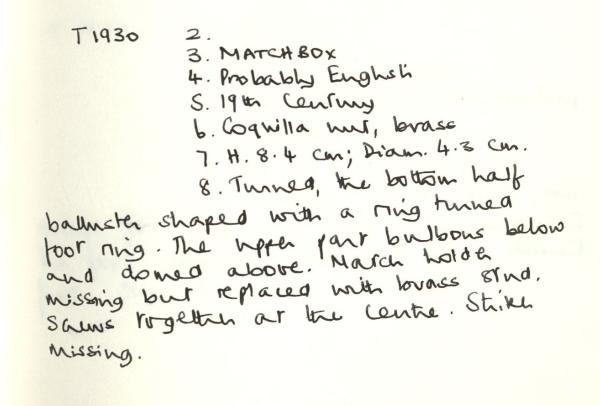 T1930 2.
3. MATCHBOX
4. Probably English
5. 19th Century
6. Coquilla nut, brass
7. H. 8.4 cm; Diam. 4.3 cm.
8. Turned, the bottom half
baluster shaped with a ring turned
foot ring. The upper part bulbous below
and domed above. Match holder
missing but replaced with brass stud.
Screws together at the centre. Striker
missing.